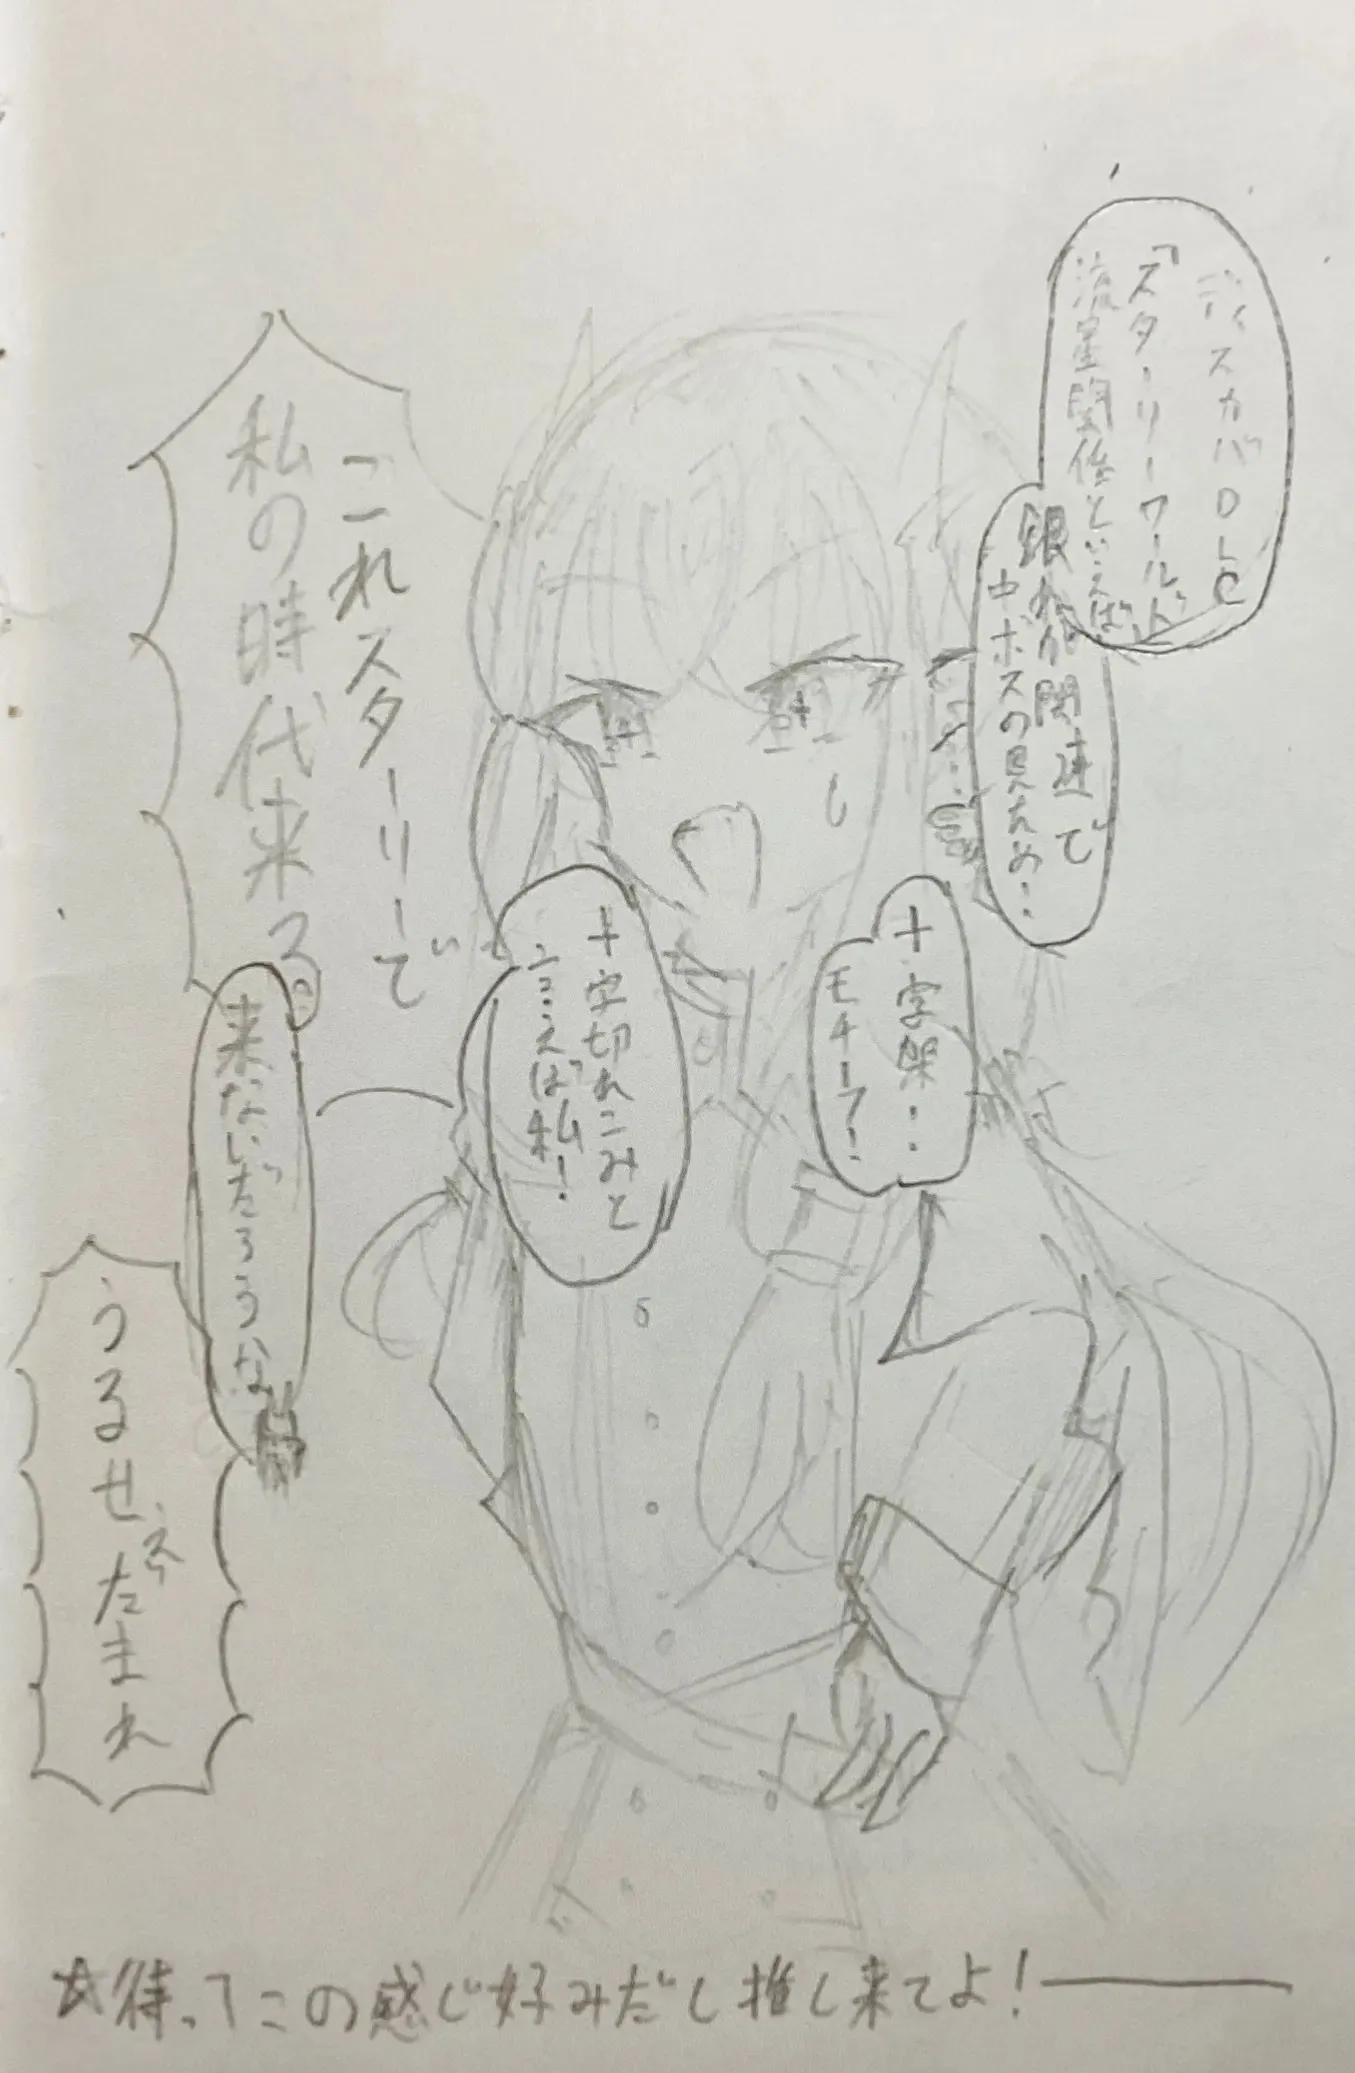 ディスカバDLC
「スターリーワールド」
流星関係といえば、
銀れが関連で
中ボスの見ため…
十字架…
モチーフ…
十字切れこみと
言えば私！
これスターリーで
私の時代来る。
来ないだろうな
うるせぇ
だまれ
☆待ってこの感じ好みだし推し来てよ！